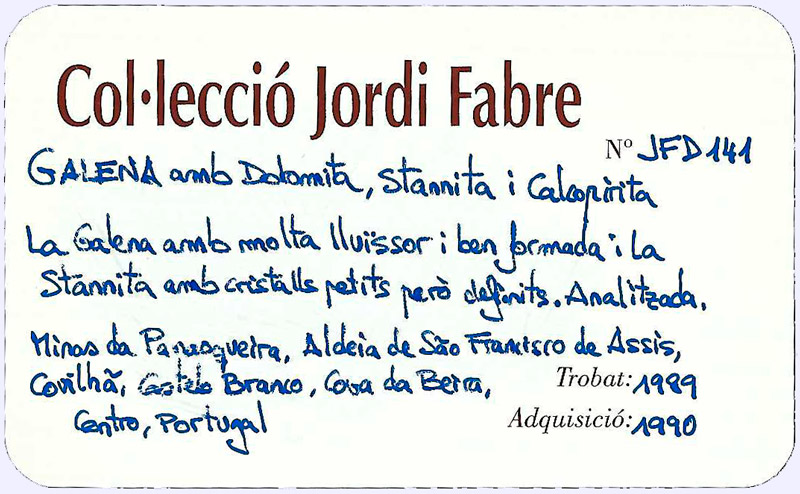 Col·lecció Jordi Fabre
Nº JFD141
GALENA amb Dolomita, Stannita i Calcopirita
La Galena amb molta lluïssor i ben formada i la
Stannita amb cristalls petits però definits. Analitzada.
Minas da Panasqueira, Aldeia de São Francisco de Assis,
Covilhã, Castelo Branco, Cova da Beira,
Trobat: 1989
Centro, Portugal
Adquisició: 1990